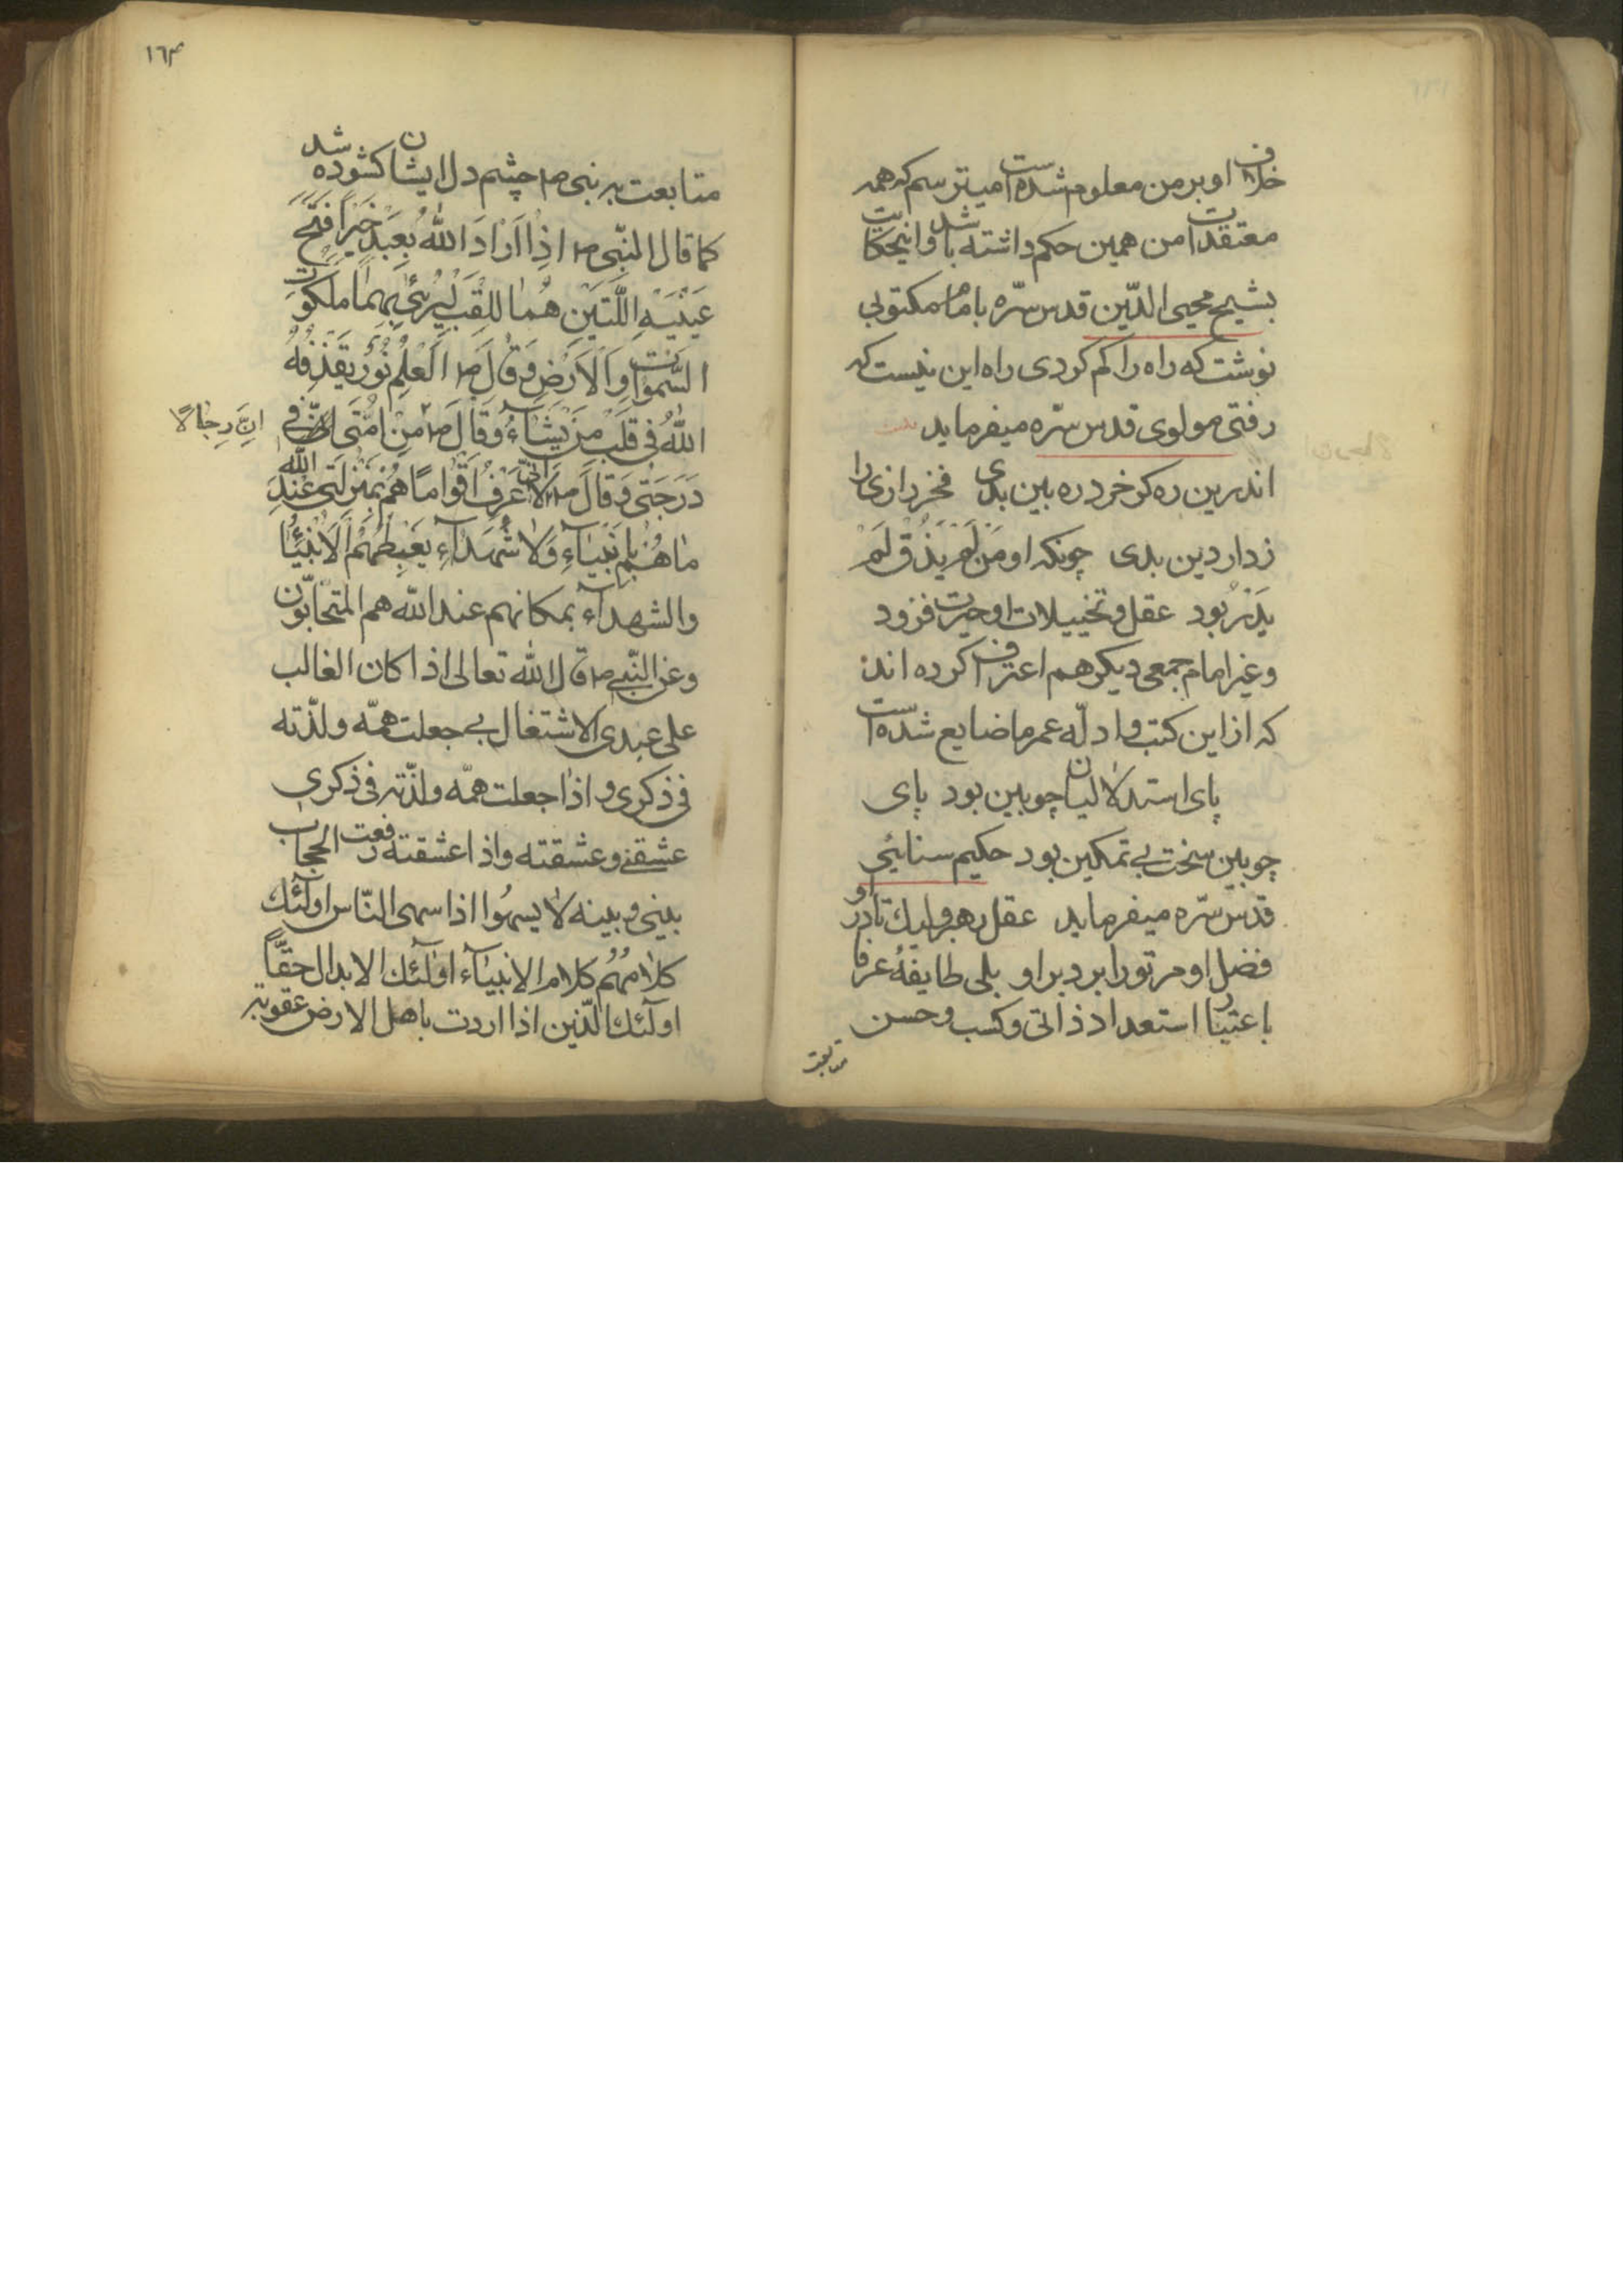 خلاف او بر من معلوم شده است میترسم که همه
معتقدات من همین حکم داشته باشد و اینحکایت
بشیخ محیی الدّین قدس سّره با مام مکتوبی
نوشت که راه را کم کردی راه این نیست که
رفتی مولوی قدس سّره میفرماید
اندرین ره کر خرد ره بین بدی فخر رازی را
زدار دین بدی چونکه او مَنْ لَمْ یَذُقْ لَمْ
یَدْرِ بود عقل و تخییلات او حیرت فزود
و غیر امام جمعی دیکر هم اعتراف کرده اند
که از این کتب و ادلّه عمر ما ضایع شده است
پای استدلالیان چوبین بود پای
چوبین سخت بی تمکین بود حکیم سنائی
قدس سّره میفرماید عقل رهبر ولیك تا در او
فضل او مر تو را برد بر او بلی طایفهٔ عرفا
باعتبار استعداد ذاتی و کسب و حسن
متابعت
١٦٤
متابعت به نبی ص چشم دل ایشان کشوده شد
کما قال النبّی ص اِذا اَرَادَ اللّٰهُ بِعَبْدٍ خَیْراً فَتَحَ
عَیْنَیْهِ اللَّتَیْنِ هُمَا لِلْقَلْبِ لِیَرْیٰ بِهِمَا مَلَکُوتَ
السَّمٰواتِ وَالْاَرْضِ وَ قٰالَ ص اَلْعِلْمُ نُورٌ یَقْذِفُهُ
اللّٰهُ فی قَلْبِ مَنْ یَشَآءُ وَ قَالَ ص مِنْ اُمَّتی فی
اِنَّ رِجٰالاً
دَرَجَتی وَ قٰالَ ص اِنّی لَاَعْرِفُ اَقْوٰاماً هُمْ بِمَنْزِلَتی عِنْدَ اللّٰهِ
مٰا هُمْ بِاَنْبِیٰآءِ وَلٰا شُهَدٰآءِ یَغْبِطُهُمُ الْاَنْبِیٰآءُ
والشهدآء بمکانهم عند اللّه هم المتحابّون
و عن النّبی ص قال اللّه تعالی اذا کان الغالب
علی عبدی الاشتغال بی جعلت همّه و لذّته
فی ذکری و اذا جعلت همّه و لذّته فی ذکری
عشقنی و عشقته و اذا عشقته رفعت الحجاب
بینی و بینه لا یسهُوا اذا سهی النّاس اولٓئك
کلامُهُم کلام الانبیآء اولٓئك الابدال حقّاً
اولٓئك الّذین اذا اردت باهل الارض عقوبة